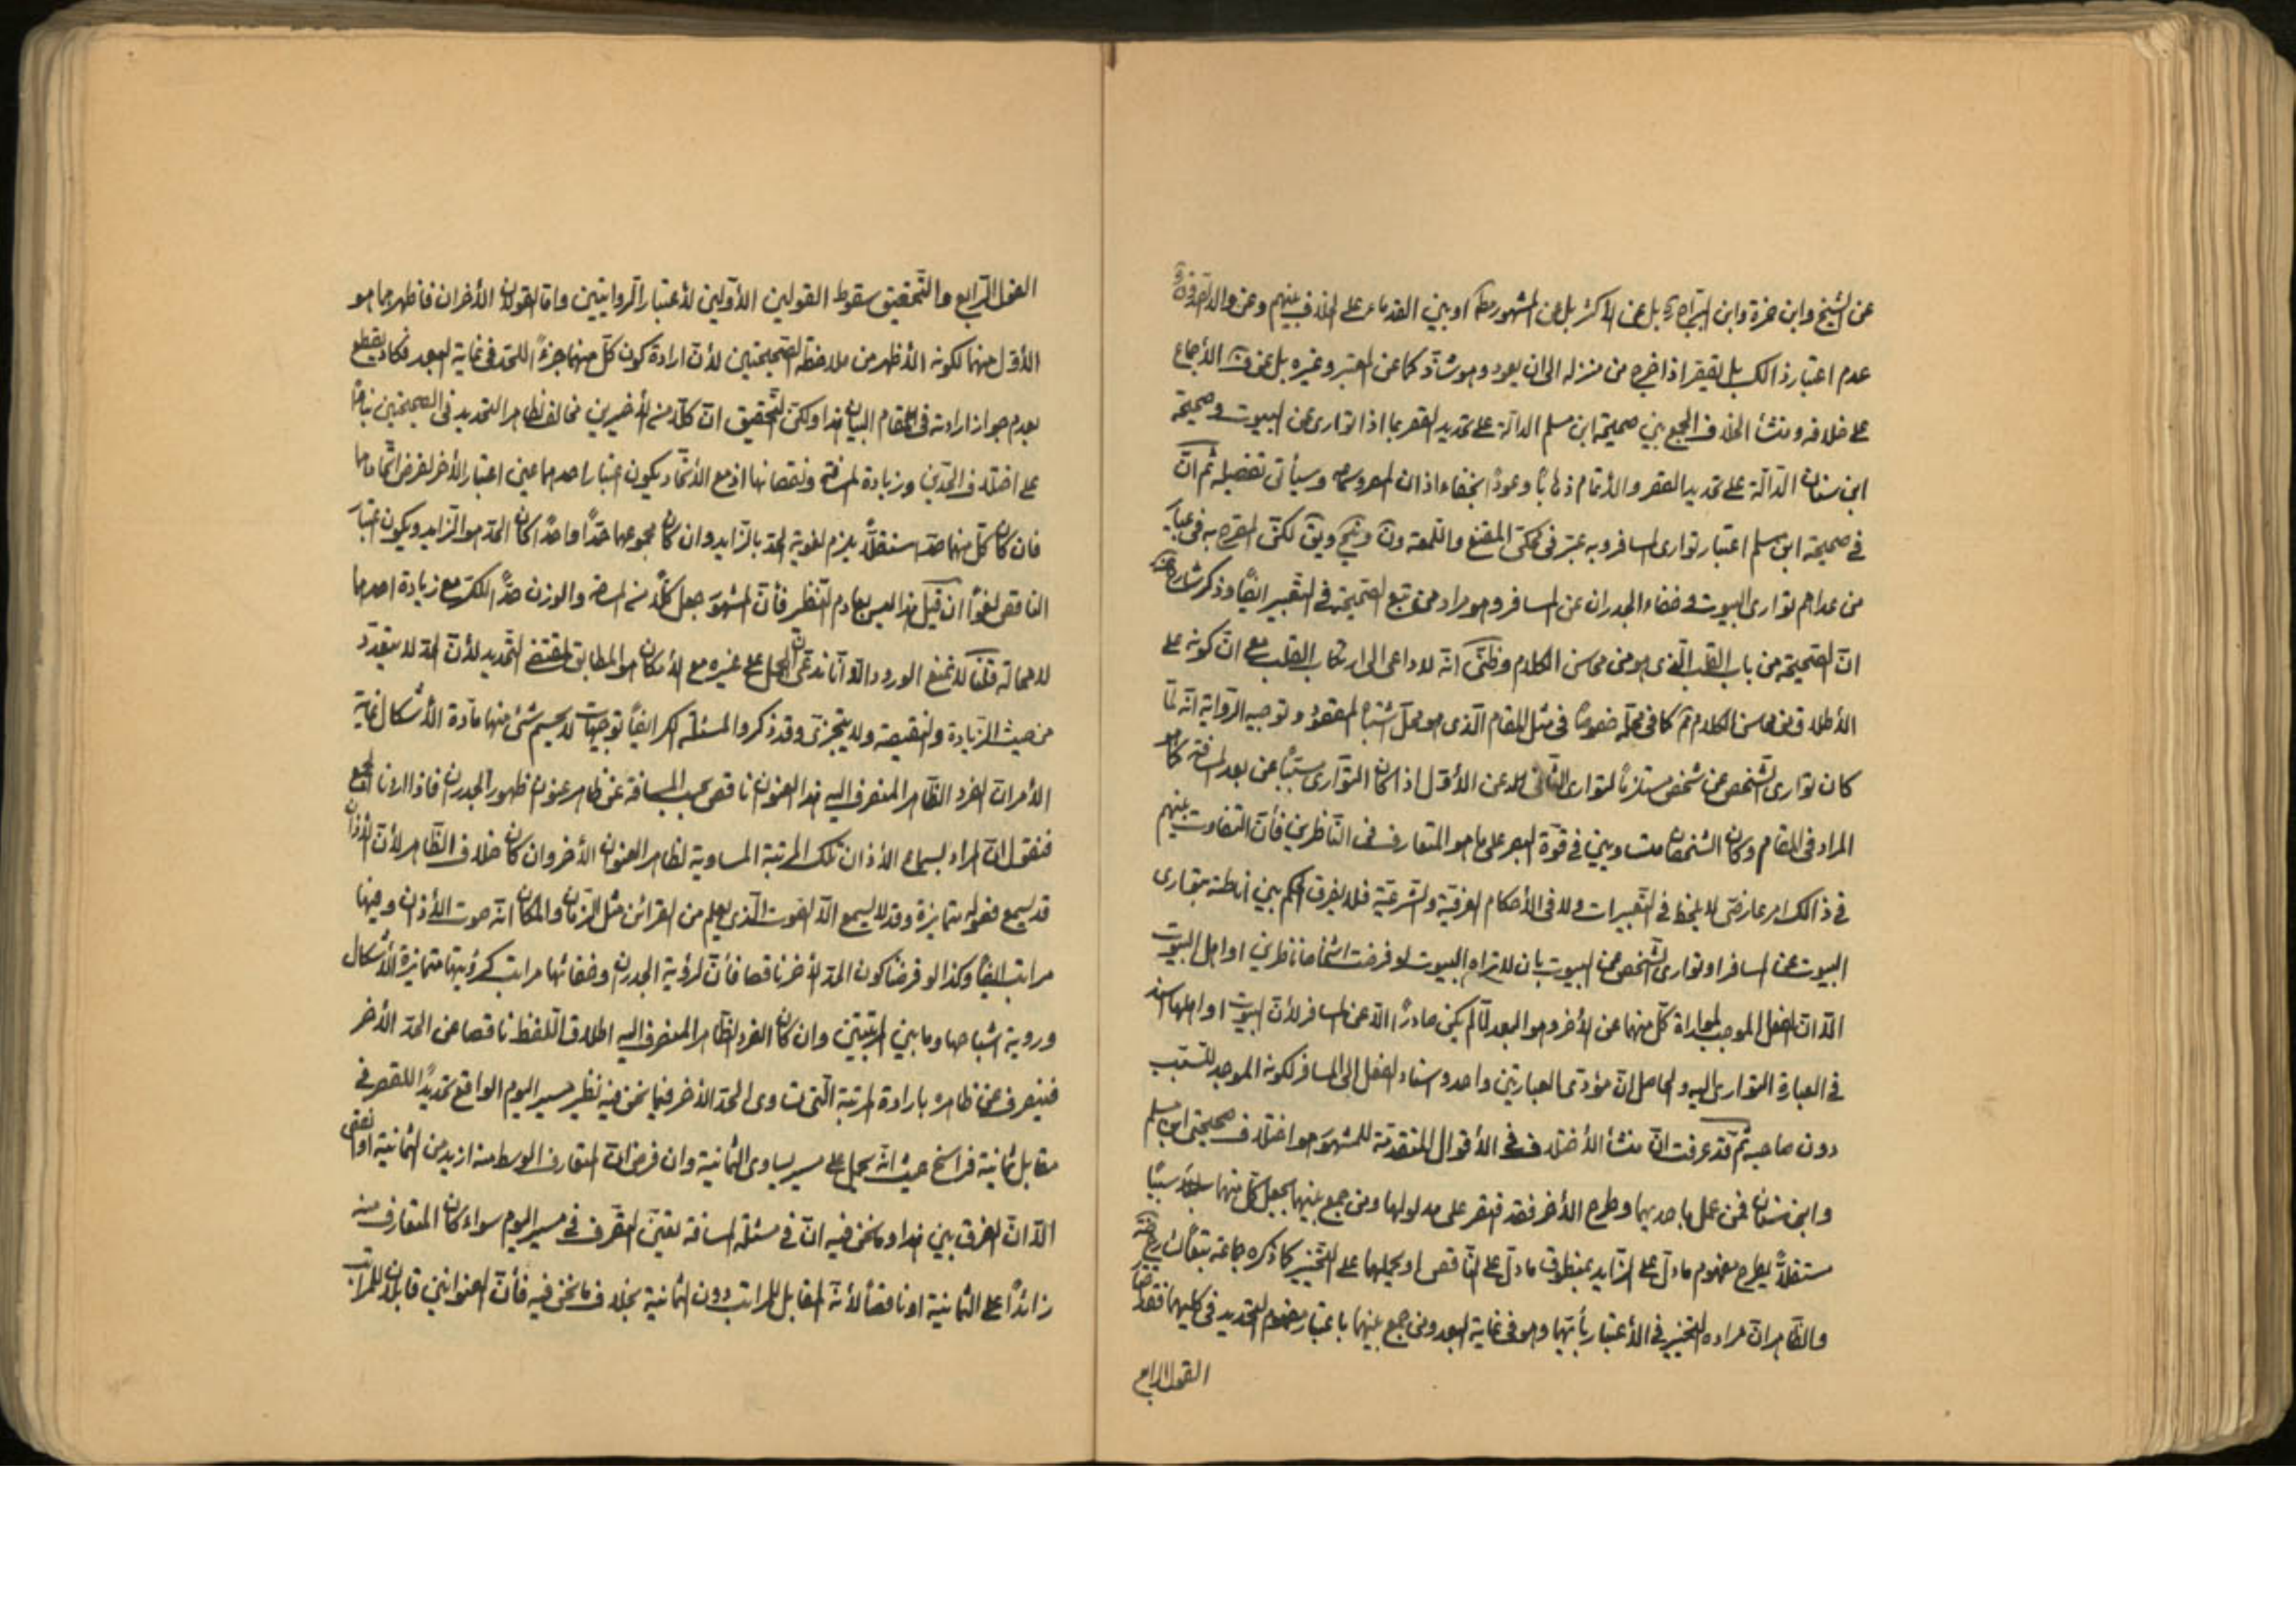 عن الشيخ وابن حمزة وابن البراج بل عن الأكثر بل عن المشهور مط او بين القدماء على الخلاف بينهم وعن والد الصدوق
عدم اعتبار ذالك بل يقصر اذا خرج من منزله الى ان يعود وهو شاذ كما عن المعتبر وغيره بل عن ف الأجماع
على خلافه ومنشأ الخلاف الجمع بين صحيحة ابن مسلم الدالة على تحديد القصر بما اذا توارى عن البيوت وصحيحة
ابن سنان الدالة على تحديد القصر والأتمام ذهابا وعودا بخفاء اذان المصر وسيأتى تفصيله ثم ان
فى صحيحة ابن مسلم اعتبار توارى المسافر وبه عبر فى محكى المقنع واللمعة لكن المصرح به فى عبارة
من عداهم توارى البيوت وخفاء الجدران عن المسافر وهو مراد من تبع الصحيحة فى التعبير ايضا وذكر شارح
ان الصحيحة من باب القلب الذى هو من محاسن الكلام وظنى انه لا داعى الى ارتكاب القلب مع ان كونه على
الأطلاق من محاسن الكلام ثم كا فى محله خصوصا فى مثل المقام الذى هو محل اشتباه المقصود وتوجيه الرواية انه لما
كان توارى الشخص عن شخص مستلزما لتوارى الثانى عن الأول اذا كان التوارى مسببا عن بعد المسافة كما هو
المراد فى المقام وكان الشخصان متساويين فى قوة البصر على ما هو المتعارف فى الناظرين فأن التفاوت بينهم
فى ذالك امر عارضى لا يلحظ فى التعبيرات ولا فى الأحكام العرفية والشرعية فلا يفرق الحكم بين اناطته بتوارى
البيوت عن المسافر او توارى الشخص عن البيوت بان لا تراه البيوت لو فرضت اشخاصا ناظرين او اهل البيوت
الا ان الفعل الموجب لمواراة كل منهما عن الأخر وهو البعد لما لم يكن صادرا الا عن المسافر لأن البيوت او اهلها اسند
فى العبارة التوارى اليه والحاصل ان مؤدى العبارتين واحد واسناد الفعل الى المسافر لكونه الموجد للسبب
دون صاحبه ثم قد عرفت ان منشأ الأختلاف فى الأقوال المتقدمة للمشهور هو اختلاف صحيحتى ابن مسلم
وابن سنان فمن عمل باحديهما وطرح الأخر فقد قصر على مدلولها ومن جمع بينهما بجعل كل منهما سببا
مستقلا يطرح مفهوم ما دل على الزايد بمنطوق ما دل على الناقص او بحملهما على التخيير كما ذكره جماعة تبعا
والظاهر ان مراده التخيير فى الأعتبار بأيتهما وهو فى غاية البعد ومن جمع بينهما باعتبار مفهوم التحديد فى كليهما فقد
القول الرابع
القول الرابع والتحقيق سقوط القولين الأولين لأعتبار الروايتين واما القولان الأخران فاظهرهما هو
الأول منهما لكونه الأظهر من ملاحظة الصحيحتين لأن ارادة كون كل منهما جزءا للحد فى غاية البعد فكاد يقطع
بعدم جواز ارادته فى المقام البيان هذا ولكن التحقيق ان كلا من الأخيرين مخالف لظاهر التحديد فى الصحيحتين بناء
على اختلاف الحدين وزيادة المسافة ونقصانها اذ مع الأتحاد يكون اعتبار احدهما عين اعتبار الأخر لفرض اتحادهما
فان كان كل منهما حدا مستقلا يلزم لغوية الحد بالزايد وان كان مجموعهما حدا واحدا كان الحد هو الزايد ويكون اعتبار
الناقص لغوا ان قيل هذا ليس بعادم النظر فأن المشهور جعل كلا من المساحة والوزن حدا للكر مع زيادة احدهما
لا محالة قلنا لا نمنع الورود الا انا ندعى ان الحمل على غيره مع الأمكان هو المطابق لمقتضى التحديد لأن الحد لا يتعدد
من حيث الزيادة والنقيصة ولا يتجزى وقد ذكروا لمسئلة الكر ايضا توجيهات لا يحسم شئ منها مادة الأشكال غاية
الأمر ان الفرد الظاهر المنصرف اليه هذا العنوان ناقص بحسب المسافة عن ظاهر عنوان ظهور الجدران فاذا اردنا الجمع
فنقول ان المراد بسماع الأذان تلك المرتبة المساوية لظاهر العنوان الأخر وان كان خلاف الظاهر لأن الأذان
قد يسمع فصوله متمايزة وقد لا يسمع الا الصوت الذى يعلم من القرائن مثل الزمان والمكان انه صوت الأذان وبينهما
مراتب ايضا وكذا لو فرضنا كون الحد الأخر ناقصا فأن لرؤية الجدران وخفائها مراتب كرؤيتها متمايزة الأشكال
وروية اشباحها وما بين المرتبتين وان كان الفرد الظاهر المنصرف اليه اطلاق اللفظ ناقصا عن الحد الأخر
فينصرف عن ظاهره بارادة المرتبة التى تساوى الحد الأخر فيما نحن فيه نظير مسير اليوم الواقع تحديدا للقصر فى
مقابل ثمانية فراسخ حيث انه يحمل على مسير يساوى الثمانية وان فرض ان المتعارف الوسط منه ازيد من الثمانية او انقص
الا ان الفرق بين هذا وما نحن فيه ان فى مسئلة المسافة تعين التصرف فى مسير اليوم سواء كان المتعارف منه
زائدا على الثمانية او ناقصا لأنه المقابل للمراتب دون الثمانية بخلاف ما نحن فيه فأن العنوانين قابلان للمراتب